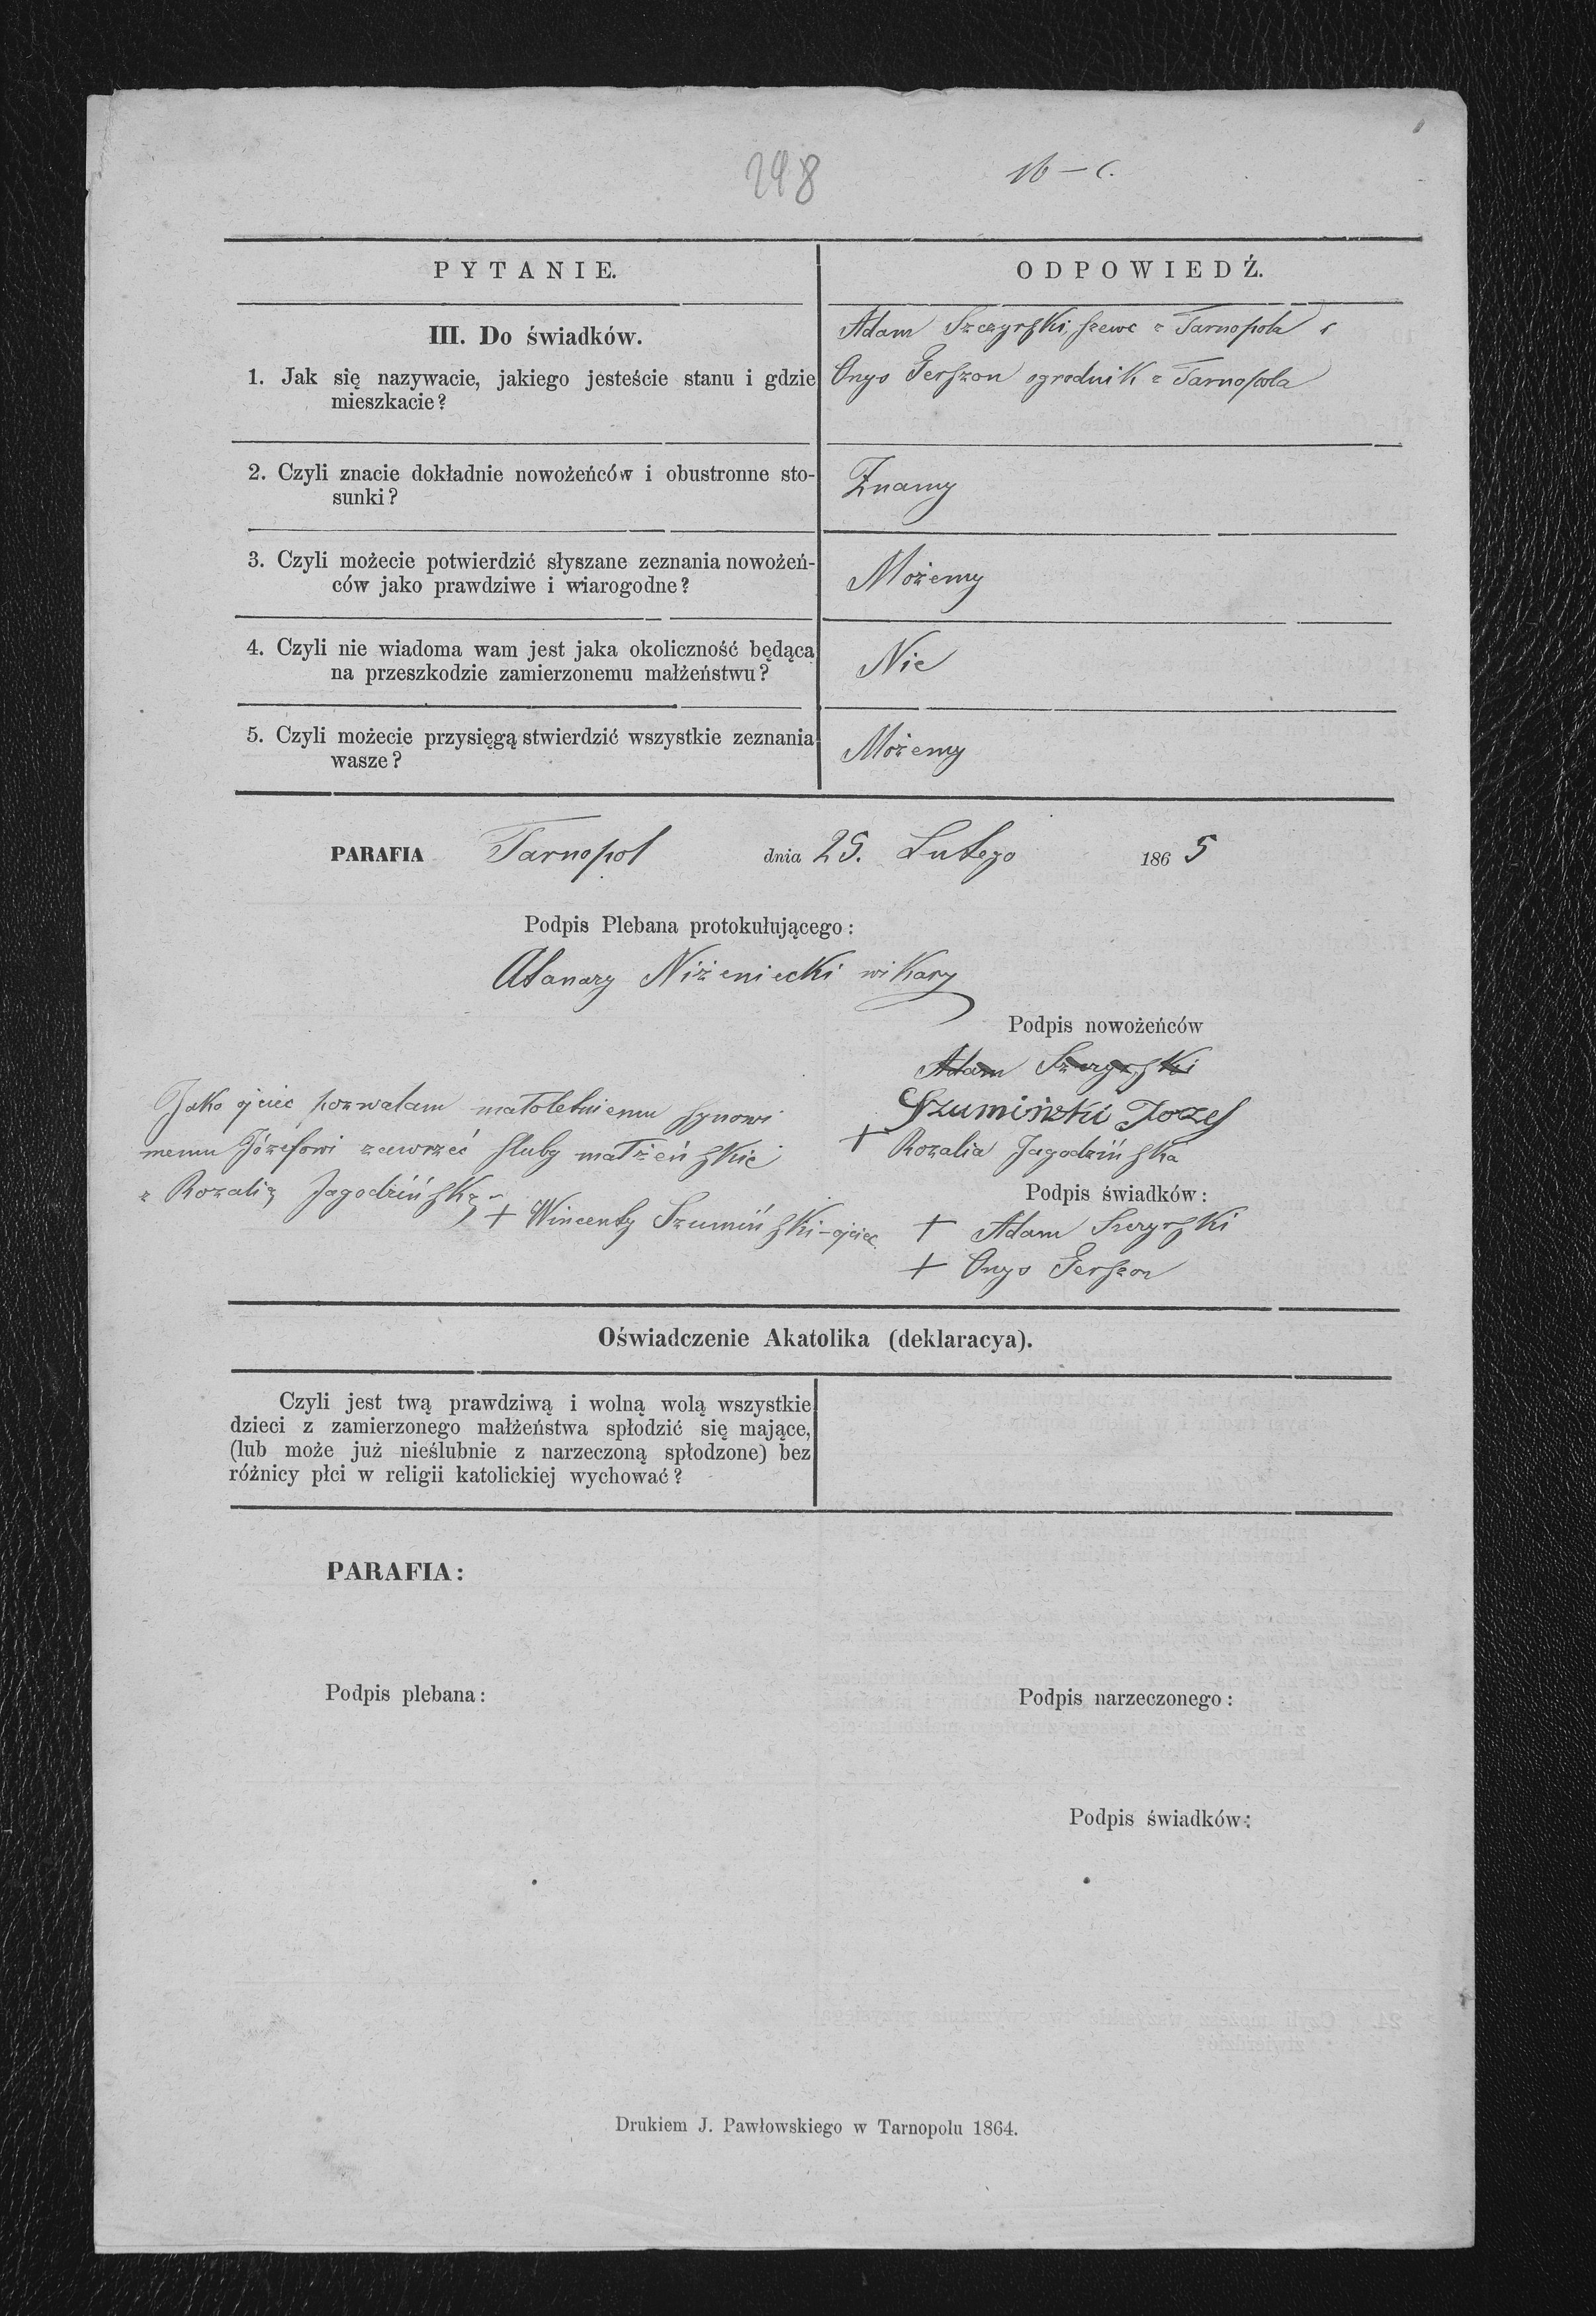 298
16 – c.
PYTANIE.
ODPOWIEDŹ.
III. Do świadków.
1. Jak się nazywacie, jakiego jesteście stanu i gdzie
mieszkacie?
Adam Szczyrski, szewc z Tarnopola i
Onyo Gerszon ogrodnik z Tarnopola
2. Czyli znacie dokładnie nowożeńców i obustronne sto-
sunki?
Znamy
3. Czyli możecie potwierdzić słyszane zeznania nowożeń-
ców jako prawdziwe i wiarogodne?
Możemy
4. Czyli nie wiadoma wam jest jaka okoliczność będąca
na przeszkodzie zamierzonemu małżeństwu?
Nie
5. Czyli możecie przysięgą stwierdzić wszystkie zeznania
wasze?
Możemy
PARAFIA Tarnopol dnia 25. Lutego 1865
Podpis Plebana protokułującego:
Atanazy Niżeniecki wikary
Podpis nowożeńców
Adam Szczyrski
Szumiński Jozef
+ Rozalia Jagodzińska
Jako ojciec pozwalam małoletniemu synowi
memu Józefowi zawrzeć śluby małżeńskie
z Rozalią Jagodzińską –
+ Wincenty Szumiński – ojciec
Podpis świadków:
+ Adam Szczyrski
+ Onyo Gerszon
Oświadczenie Akatolika (deklaracya).
Czyli jest twą prawdziwą i wolną wolą wszystkie
dzieci z zamierzonego małżeństwa spłodzić się mające,
(lub może już nieślubnie z narzeczoną spłodzone) bez
różnicy płci w religii katolickiej wychować?
PARAFIA:
Podpis plebana:
Podpis narzeczonego:
Podpis świadków:
Drukiem J. Pawłowskiego w Tarnopolu 1864.